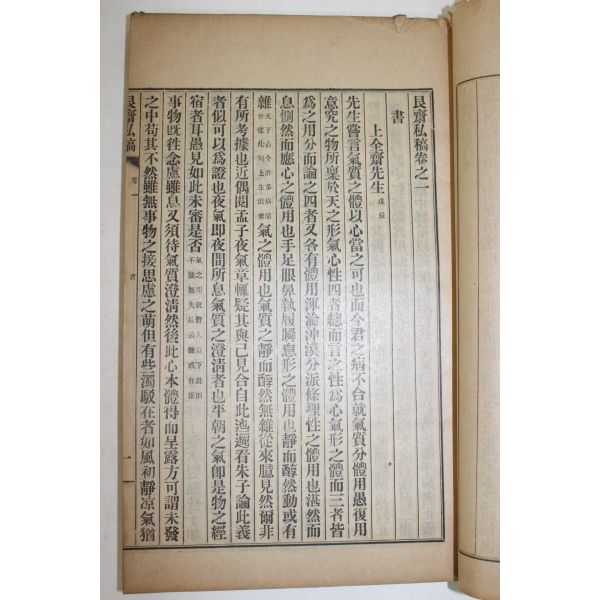 艮齋私稿卷之一
書
上全齋先生 戊辰
先生嘗言氣質之體以心當之可也而今君之病不合就氣質分體用愚復用
意究之物所稟於天之形氣心性四者總而言之性爲心氣形之體而三者皆
爲之用分而論之四者又各有體用渾淪沖漠分派條理性之體用也湛然而
息惻然而應心之體用也手足眼鼻執履瞬息形之體用也靜而醇然動或有
雜 天下古今許多病痛皆從此句上生出來 氣之體用也氣質之靜而醇然無雜從來臆見然爾非
有所考據也近偶閱孟子夜氣章輒疑其與己見合自此迤邐看朱子論此義
者似可以爲證也夜氣卽夜間所息氣質之澄清者也平朝之氣卽是物之經
宿者耳愚見如此未審是否
事物旣徃念慮雖息又須待氣質澄清然後此心本體得而呈露方可謂未發
之中苟其不然雖無事物之接思慮之萌但有些濁駁在者如風初靜凉氣猶
艮齋私稿 卷一 書 一